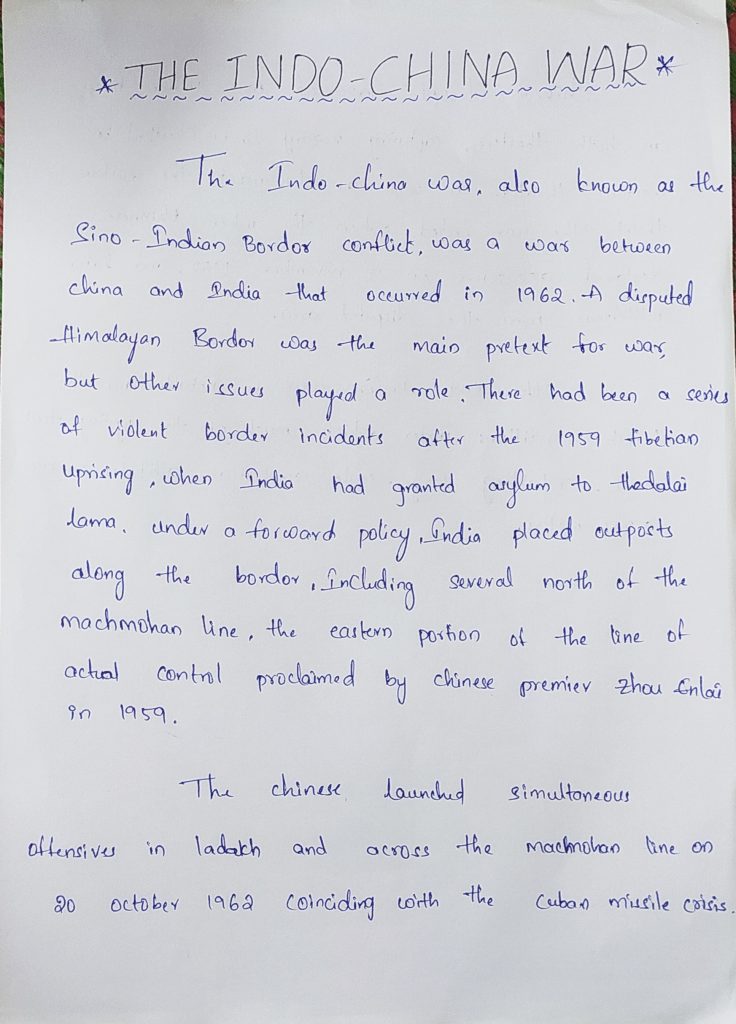 * THE INDO-CHINA WAR *
The Indo-china war, also known as the
Sino-Indian Bordor conflict, was a war between
china and India that occurred in 1962. A disputed
Himalayan Bordor was the main pretext for war,
but other issues played a role. There had been a series
of violent border incidents after the 1959 tibetian
uprising, when India had granted asylum to thedalai
lama. under a forward policy, India placed outposts
along the border, Including several north of the
machmohan line, the eastern portion of the line of
actual control proclaimed by chinese premier zhou Enlai
in 1959.
The chinese launched simultaneous
offensives in ladakh and across the machmohan line on
20 october 1962 coinciding with the cuban missile crisis.